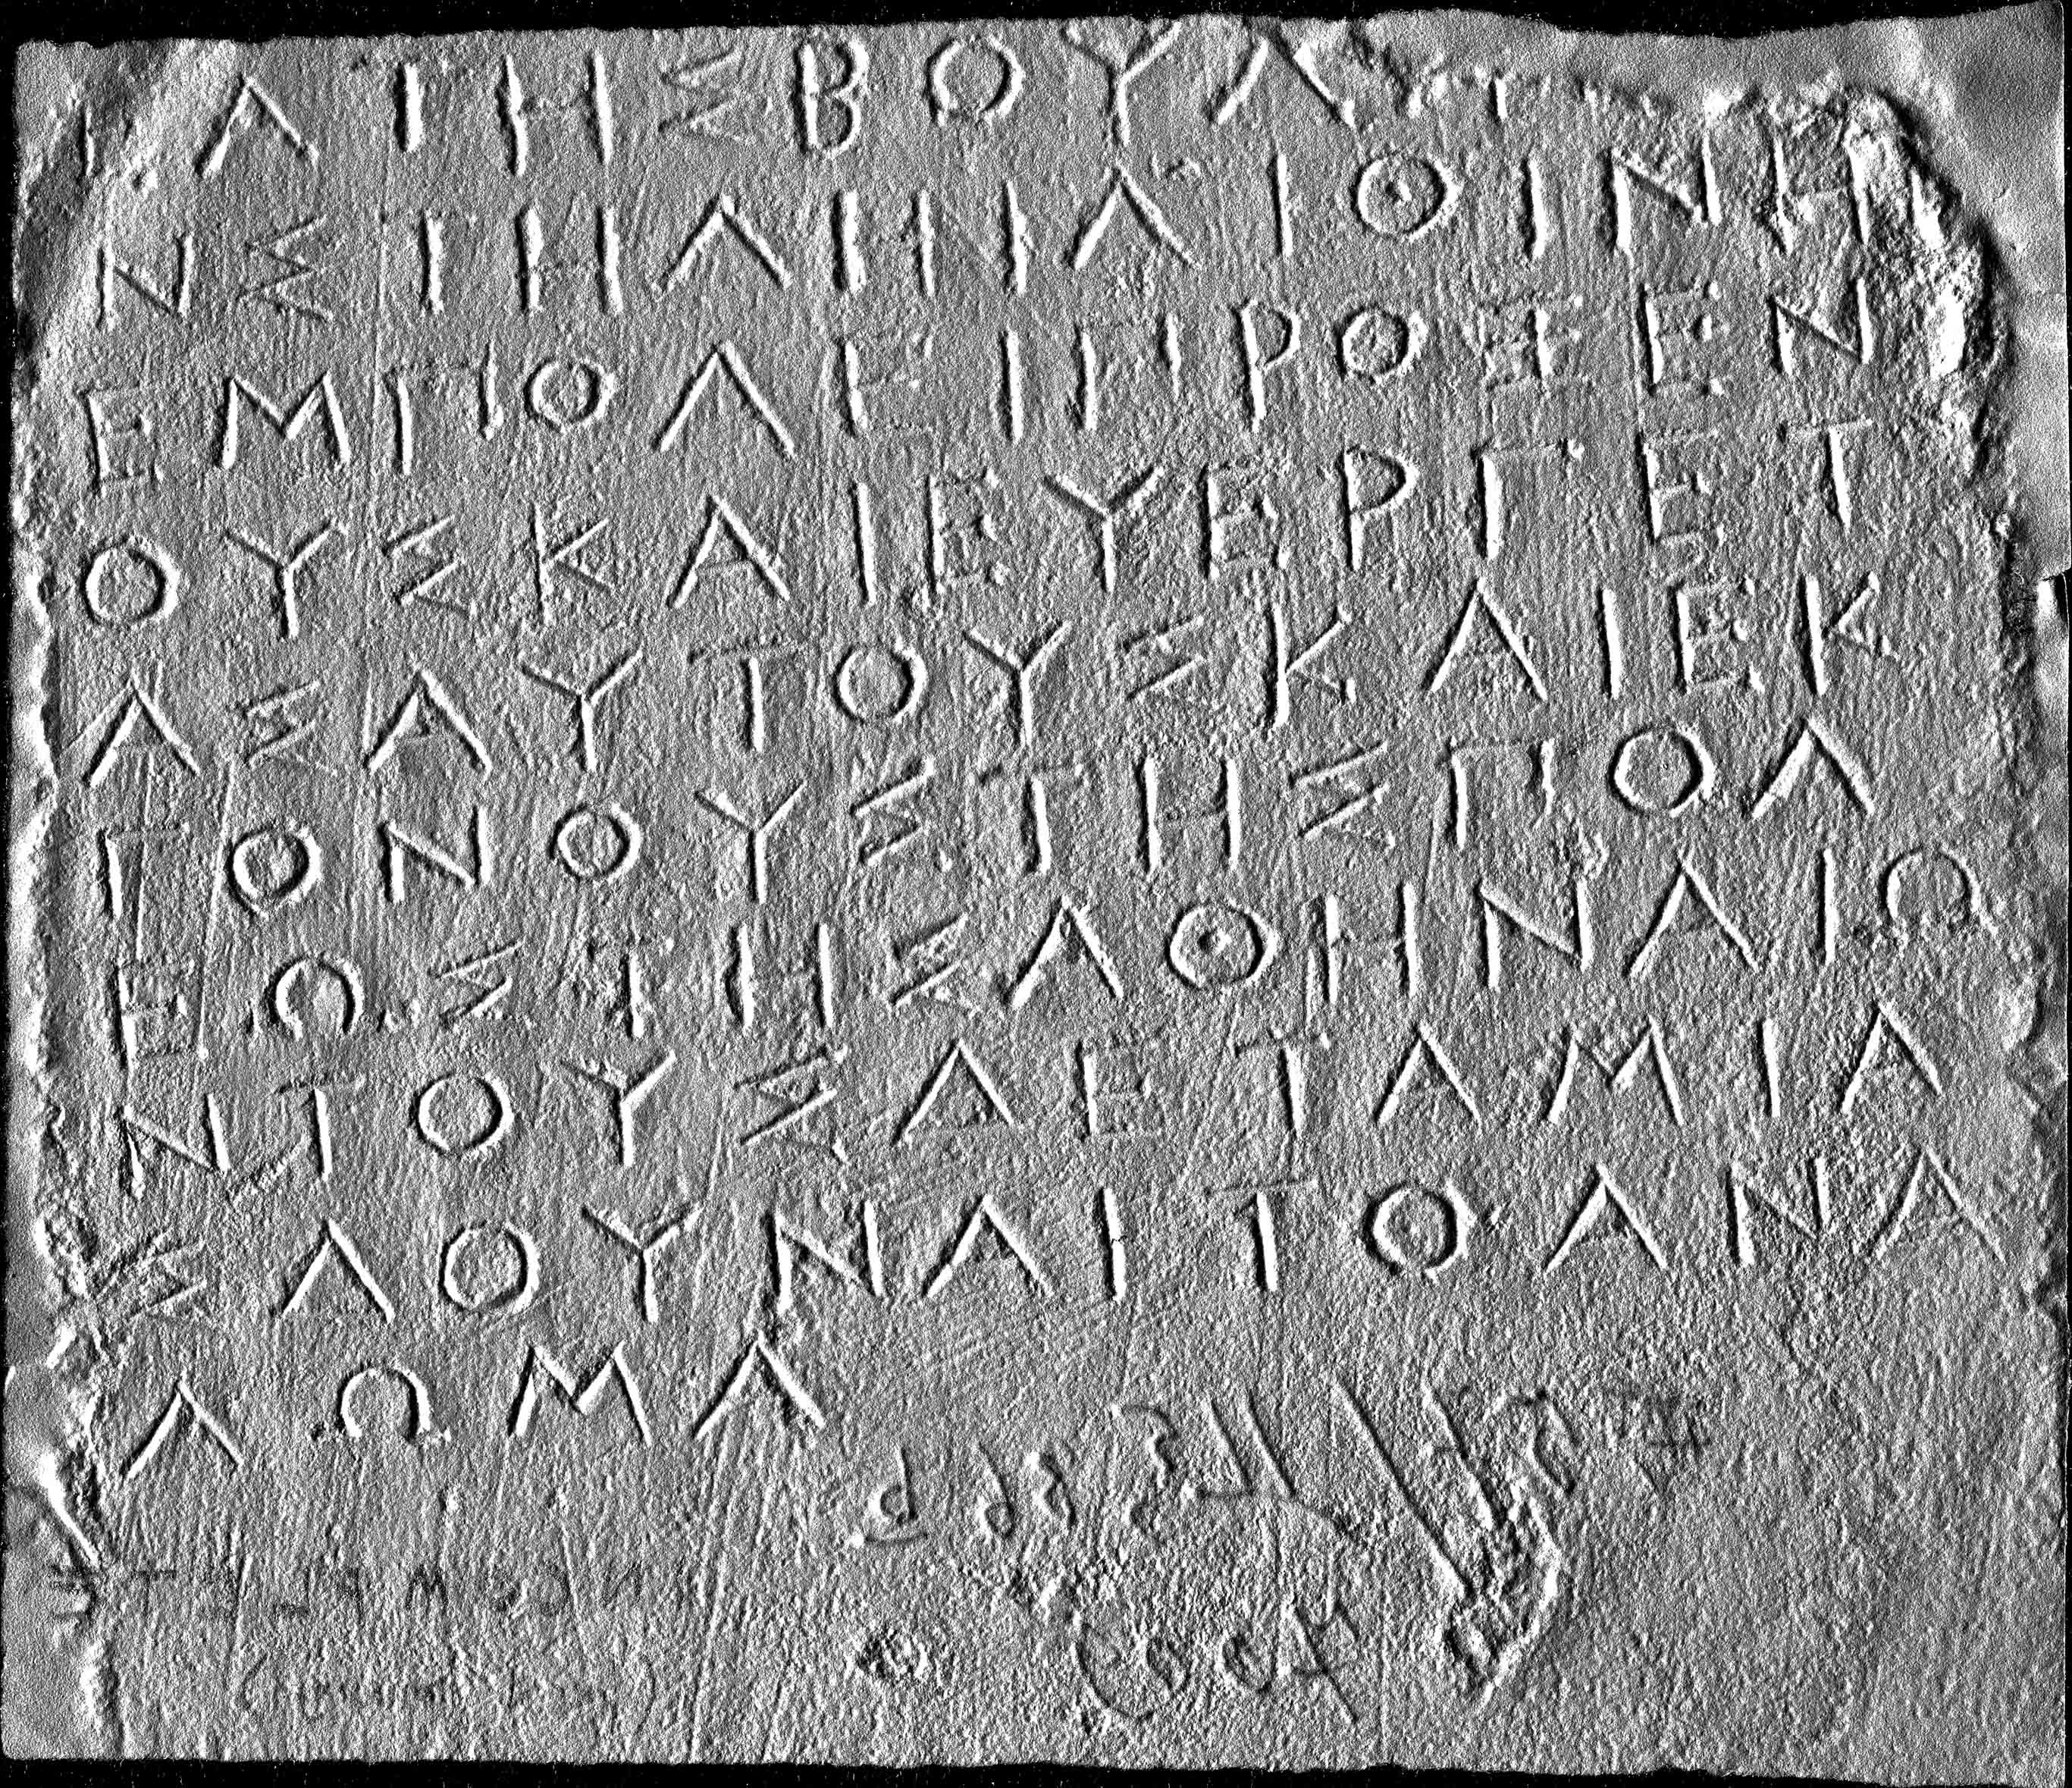 ΑΤΗΣΒΟΥΛ
ΝΣΤΗΛΗΙΛΙΘΙΝΗΙ
ΕΜΠΟΛΕΙΠΡΟΞΕΝ
ΟΥΣΚΑΙΕΥΕΡΓΕΤ
ΑΣΑΥΤΟΥΣΚΑΙΕΚ
ΓΟΝΟΥΣΤΗΣΠΟΛ
ΕΩΣΤΗΣΑΘΗΝΑΙΩ
ΝΤΟΥΣΔΕΤΑΜΙΑ
ΣΔΟΥΝΑΙΤΟΑΝΑ
ΛΩΜΑ